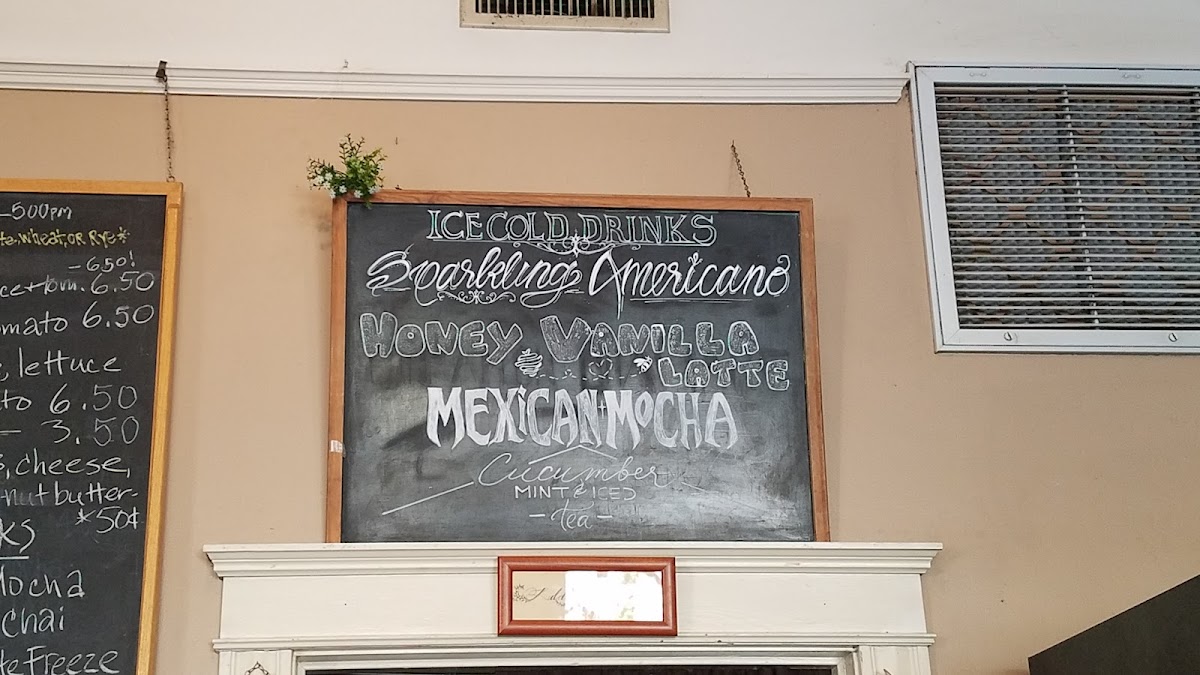 500pm
wheat, or Rye*
-6.50!
6.50
6.50
lettuce
6.50
- 3.50
cheese,
nut butter-
*50¢
Mocha
chai
Freeze
ICE COLD DRINKS
Sparkling Americano
HONEY VANILLA
LATTE
MEXICAN MOCHA
Cucumber
MINT & ICED
- tea -